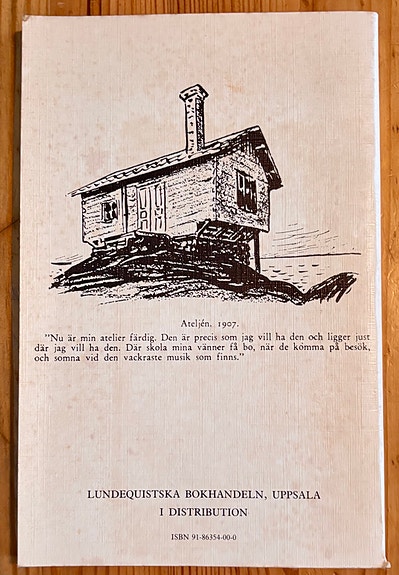 Ateljén, 1907.
"Nu är min atelier färdig. Den är precis som jag vill ha den och ligger just
där jag vill ha den. Där skola mina vänner få bo, när de komma på besök,
och somna vid den vackraste musik som finns."
LUNDEQUISTSKA BOKHANDELN, UPPSALA
I DISTRIBUTION
ISBN 91-86354-00-0